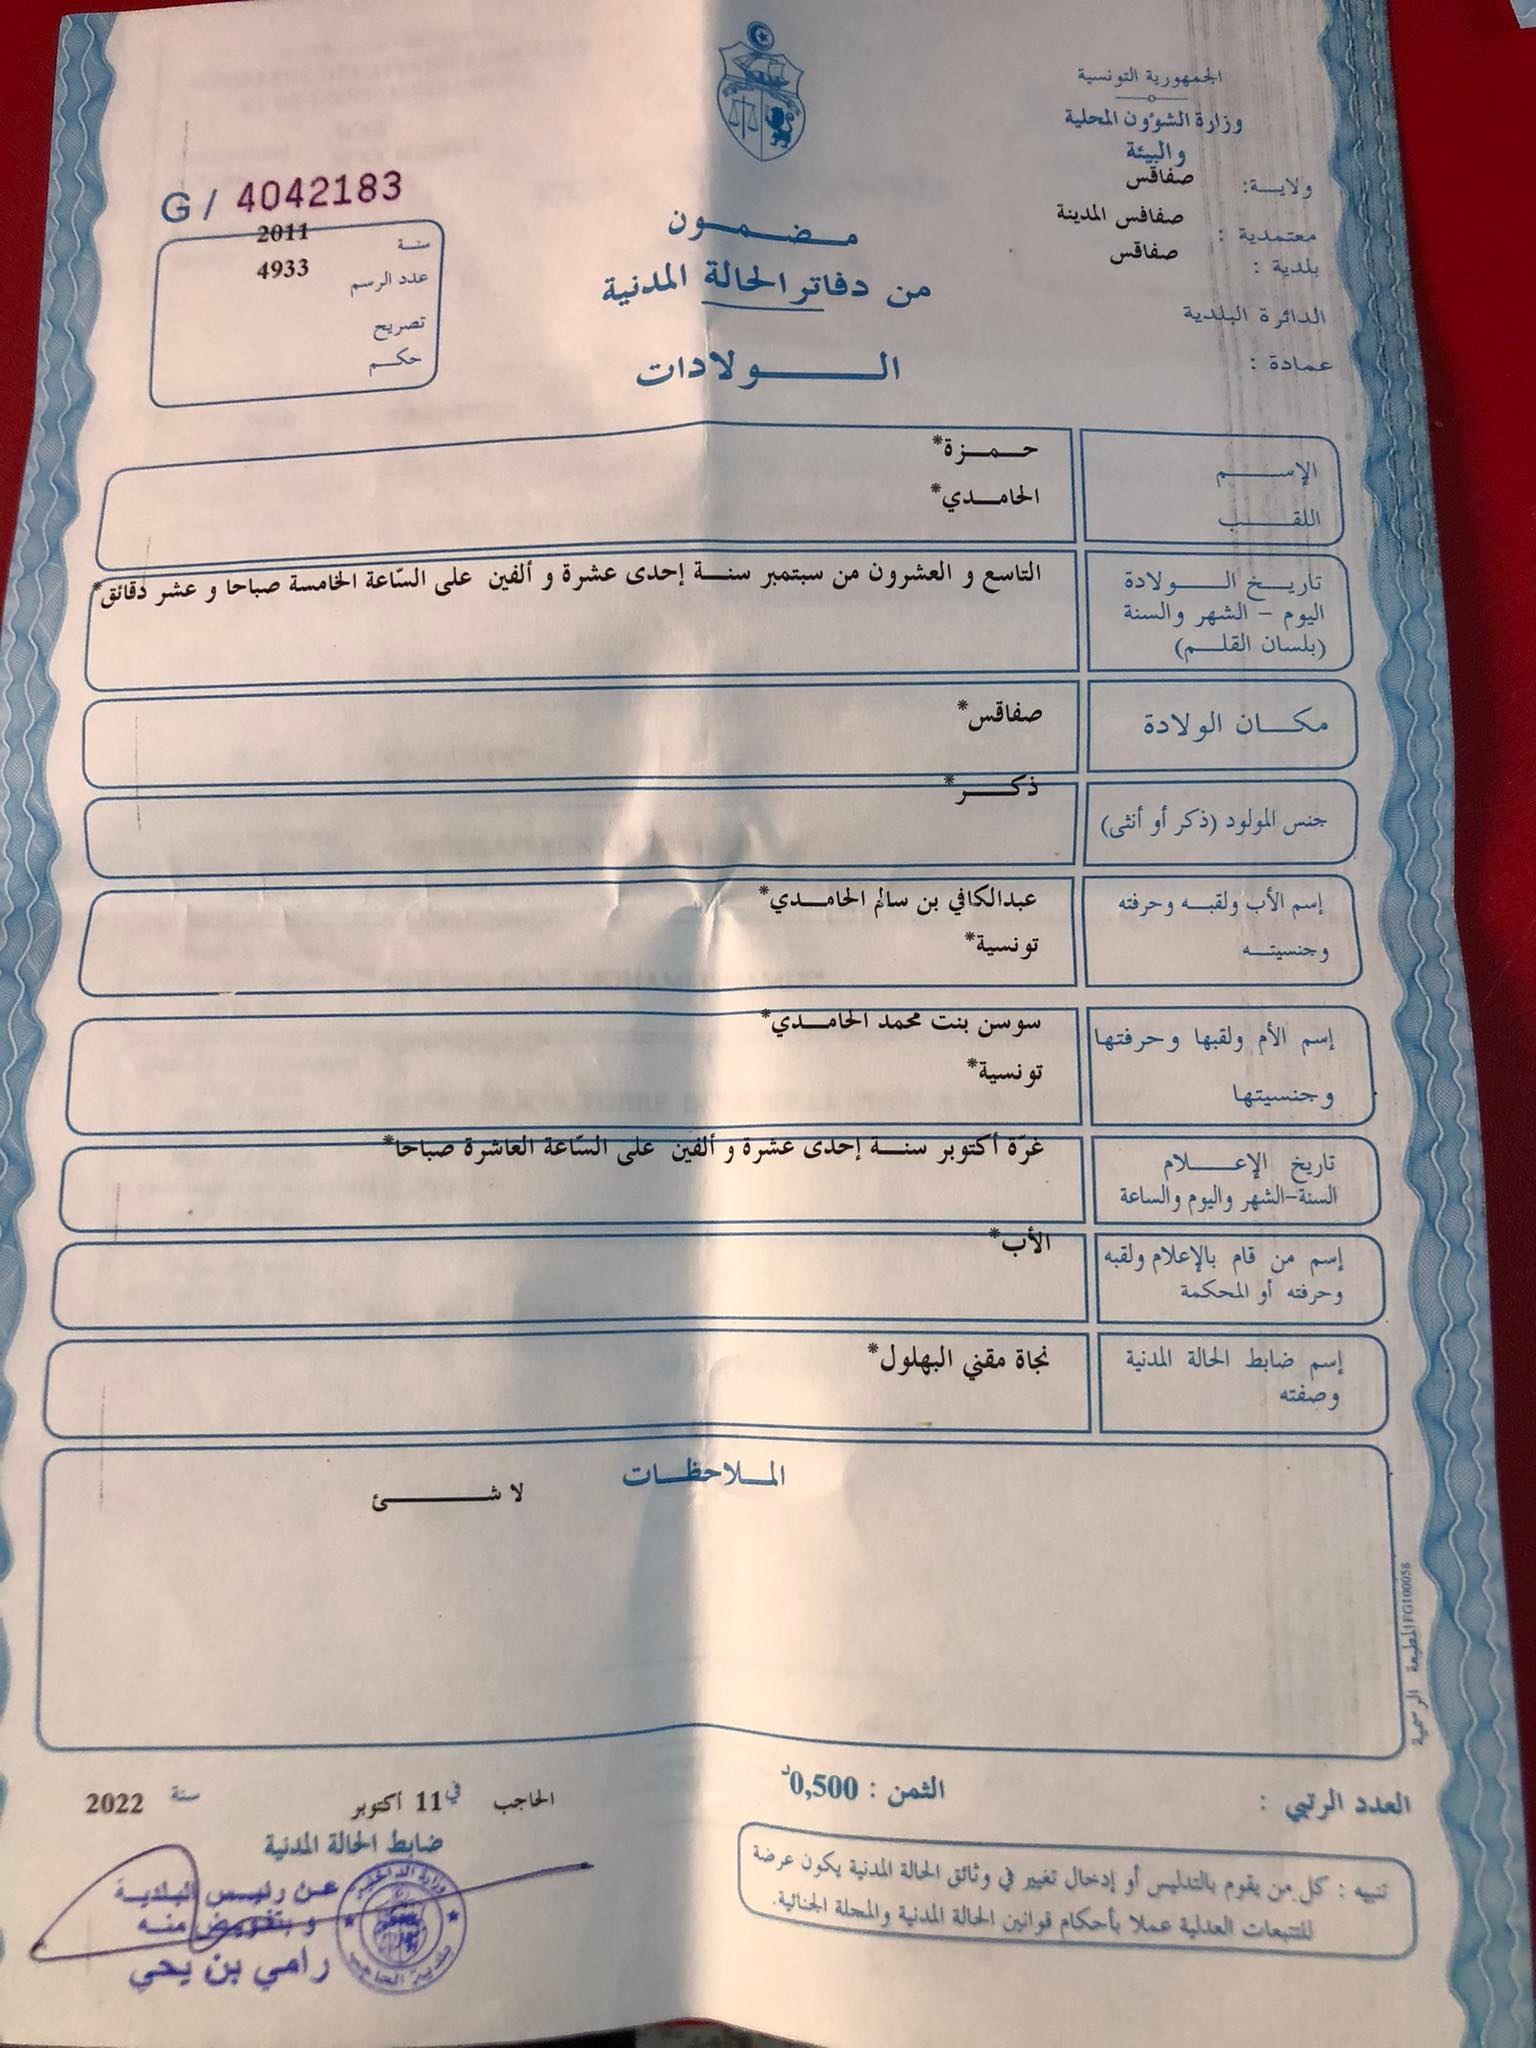 الجمهورية التونسية
وزارة الشؤون المحلية
والبيئة
ولايـة: صفاقس
معتمدية : صفاقس المدينة
بلدية : صفاقس
الدائرة البلدية
عمادة :
G / 4042183
سنة 2011
عدد الرسم 4933
تصريح
حكم
مضمون
من دفاتر الحالة المدنية
الولادات
الإسم حمزة*
اللقب الحامدي*
تاريخ الولادة
اليوم - الشهر والسنة
(بلسان القلم)
التاسع و العشرون من سبتمبر سنة إحدى عشرة و ألفين على السّاعة الخامسة صباحا و عشر دقائق*
مكان الولادة صفاقس*
جنس المولود (ذكر أو أنثى) ذكر*
إسم الأب ولقبه وحرفته عبدالكافي بن سالم الحامدي*
وجنسيته تونسية*
إسم الأم ولقبها وحرفتها سوسن بنت محمد الحامدي*
وجنسيتها تونسية*
تاريخ الإعلام غرّة أكتوبر سنة إحدى عشرة و ألفين على السّاعة العاشرة صباحا*
السنة-الشهر واليوم والساعة
إسم من قام بالإعلام ولقبه الأب*
وحرفته أو المحكمة
إسم ضابط الحالة المدنية نجاة مقني البهلول*
وصفته
الملاحظات
لا شئ
المطبعة الرسمية FG100058
العدد الرتبي :
الثمن : 0,500د
الحاجب في 11 أكتوبر سنة 2022
ضابط الحالة المدنية
عن رئيس البلدية
و بتفويض منه
رامي بن يحي
تنبيه : كل من يقوم بالتدليس أو إدخال تغيير في وثائق الحالة المدنية يكون عرضة
للتتبعات العدلية عملا بأحكام قوانين الحالة المدنية والمجلة الجنائية.